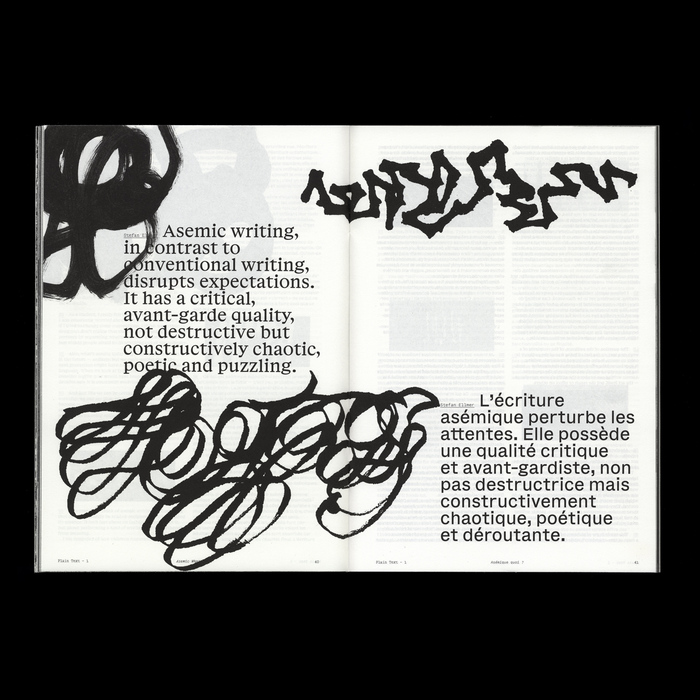 Stefan Ellmer Asemic writing,
in contrast to
conventional writing,
disrupts expectations.
It has a critical,
avant-garde quality,
not destructive but
constructively chaotic,
poetic and puzzling.
Stefan Ellmer L'écriture
asémique perturbe les
attentes. Elle possède
une qualité critique
et avant-gardiste, non
pas destructrice mais
constructivement
chaotique, poétique
et déroutante.
Plain Text – 1
40
Plain Text – 1
41